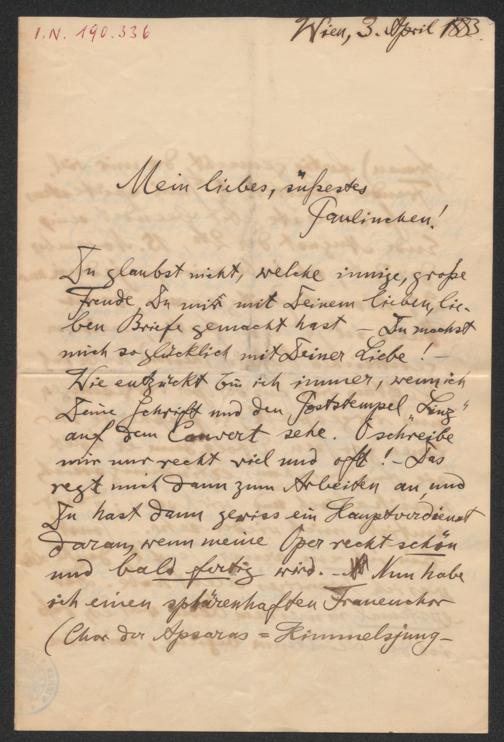 I.N. 190.336
Wien, 3. April 1883.
Mein liebes, süßestes
Paulinchen!
Du glaubst nicht, welche innige, große
Freude Du mir mit Deinem lieben, lie-
ben Briefe gemacht hast – Du machst
mich so glücklich mit Deiner Liebe! –
Wie entzückt bin ich immer, wenn ich
Deine Schrift und den Poststempel „Linz"
auf dem Couvert sehe. O schreibe
mir nur recht viel und oft! – Das
regt mich dann zum Arbeiten an, und
Du hast dann gewiss ein Hauptverdienst
daran, wenn meine Oper recht schön
und bald fertig wird. – Nun habe
ich einen sphärenhaften Frauenchor
(Chor der Apsaras = Himmelsjung-